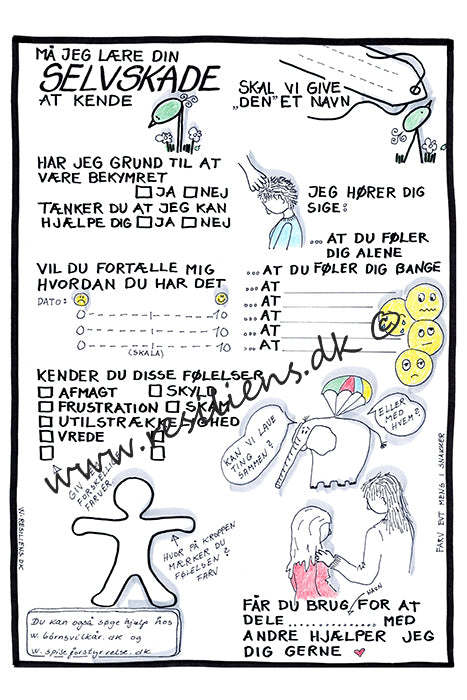 MÅ JEG LÆRE DIN
SELVSKADE
AT KENDE
SKAL VI GIVE
„DEN" ET NAVN
HAR JEG GRUND TIL AT
VÆRE BEKYMRET
JA NEJ
TÆNKER DU AT JEG KAN
HJÆLPE DIG JA NEJ
JEG HØRER DIG
SIGE:
... AT DU FØLER
DIG ALENE
... AT DU FØLER DIG BANGE
... AT
... AT
... AT
... AT
... AT
VIL DU FORTÆLLE MIG
HVORDAN DU HAR DET
DATO:
0 10
0 10
0 10
(SKALA)
KENDER DU DISSE FØLELSER
AFMAGT SKYLD
FRUSTRATION SKAM
UTILSTRÆKKELIGHED
VREDE
GIV
FORSKELLIGE
FARVER
KAN VI LAVE
TING
SAMMEN?
ELLER
MED
HVEM?
HVOR PÅ KROPPEN
MÆRKER DU
FØLELSEN?
FARV
FARV EVT MENS I SNAKKER
W.RESILIENS.DK
Du kan også søge hjælp hos
w. børnsvilkår.dk og
w. spiseforstyrrelse.dk
NAVN
FÅR DU BRUG FOR AT
DELE .............. MED
ANDRE HJÆLPER JEG
DIG GERNE
www.resiliens.dk ©